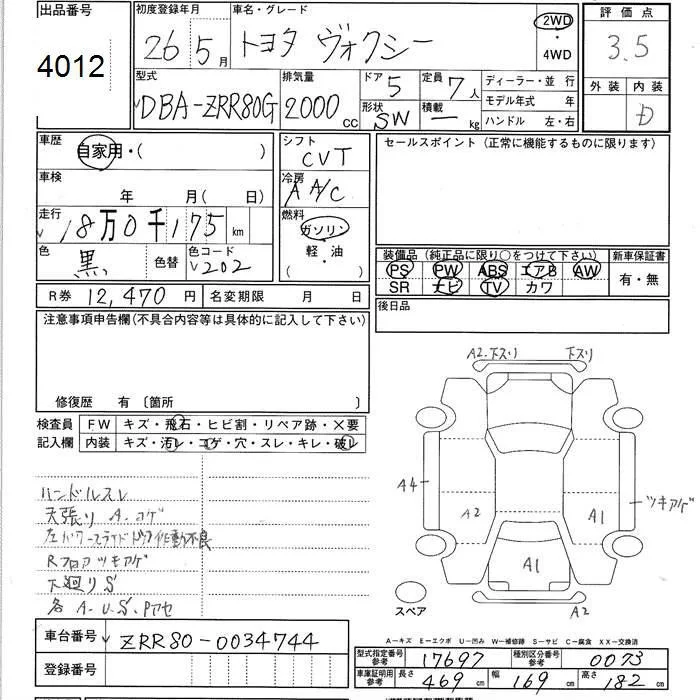 出品番号
4012
初度登録年月
26 5月
車名・グレード
トヨタ ヴォクシー
2WD
・
4WD
評価点
3.5
外装 内装
D
型式
DBA-ZRR80G
排気量
2000 CC
ドア 5
形状 SW
定員 7人
積載 ー kg
ディーラー・並 行
モデル年式 年
ハンドル 左・右
車歴
自家用・( )
車検
年 月(日)
走行
18万0千175 km
色
黒
色替
色コード
202
シフト
CVT
冷房
AA/C
燃料
ガソリン・
軽・油
( )
セールスポイント(正常に機能するものに限ります)
装備品(純正品に限り○をつけて下さい)
PS PW ABS エアB AW
SR ナビ TV カワ
新車保証書
有・無
R券 12,470 円
名変期限 月 日
後日品
注意事項申告欄(不具合内容等は具体的に記入して下さい)
修復歴 有〔箇所 〕
検査員
記入欄
FW キズ・飛石・ヒビ割・リペア跡・×要
内装 キズ・汚レ・コゲ・穴・スレ・キレ・破レ
ハンドルスレ
天張りA.コゲ
左パワースライドドア作動不良
Rフロアツキアゲ
下廻りS
各A.U.S.Pアセ
A2.下スリ 下スリ
A4
A2
A1
ツキアゲ
A1
A2
スペア
A－キズ E－エクボ U－凹み W－補修跡 S－サビ C－腐食 XX－交換済
車台番号
ZRR80-0034744
登録番号
型式指定番号
参考
17697
種別区分番号
参考
0073
車庫証明用
参考
長さ 469 cm
幅 169 cm
高さ 182 cm